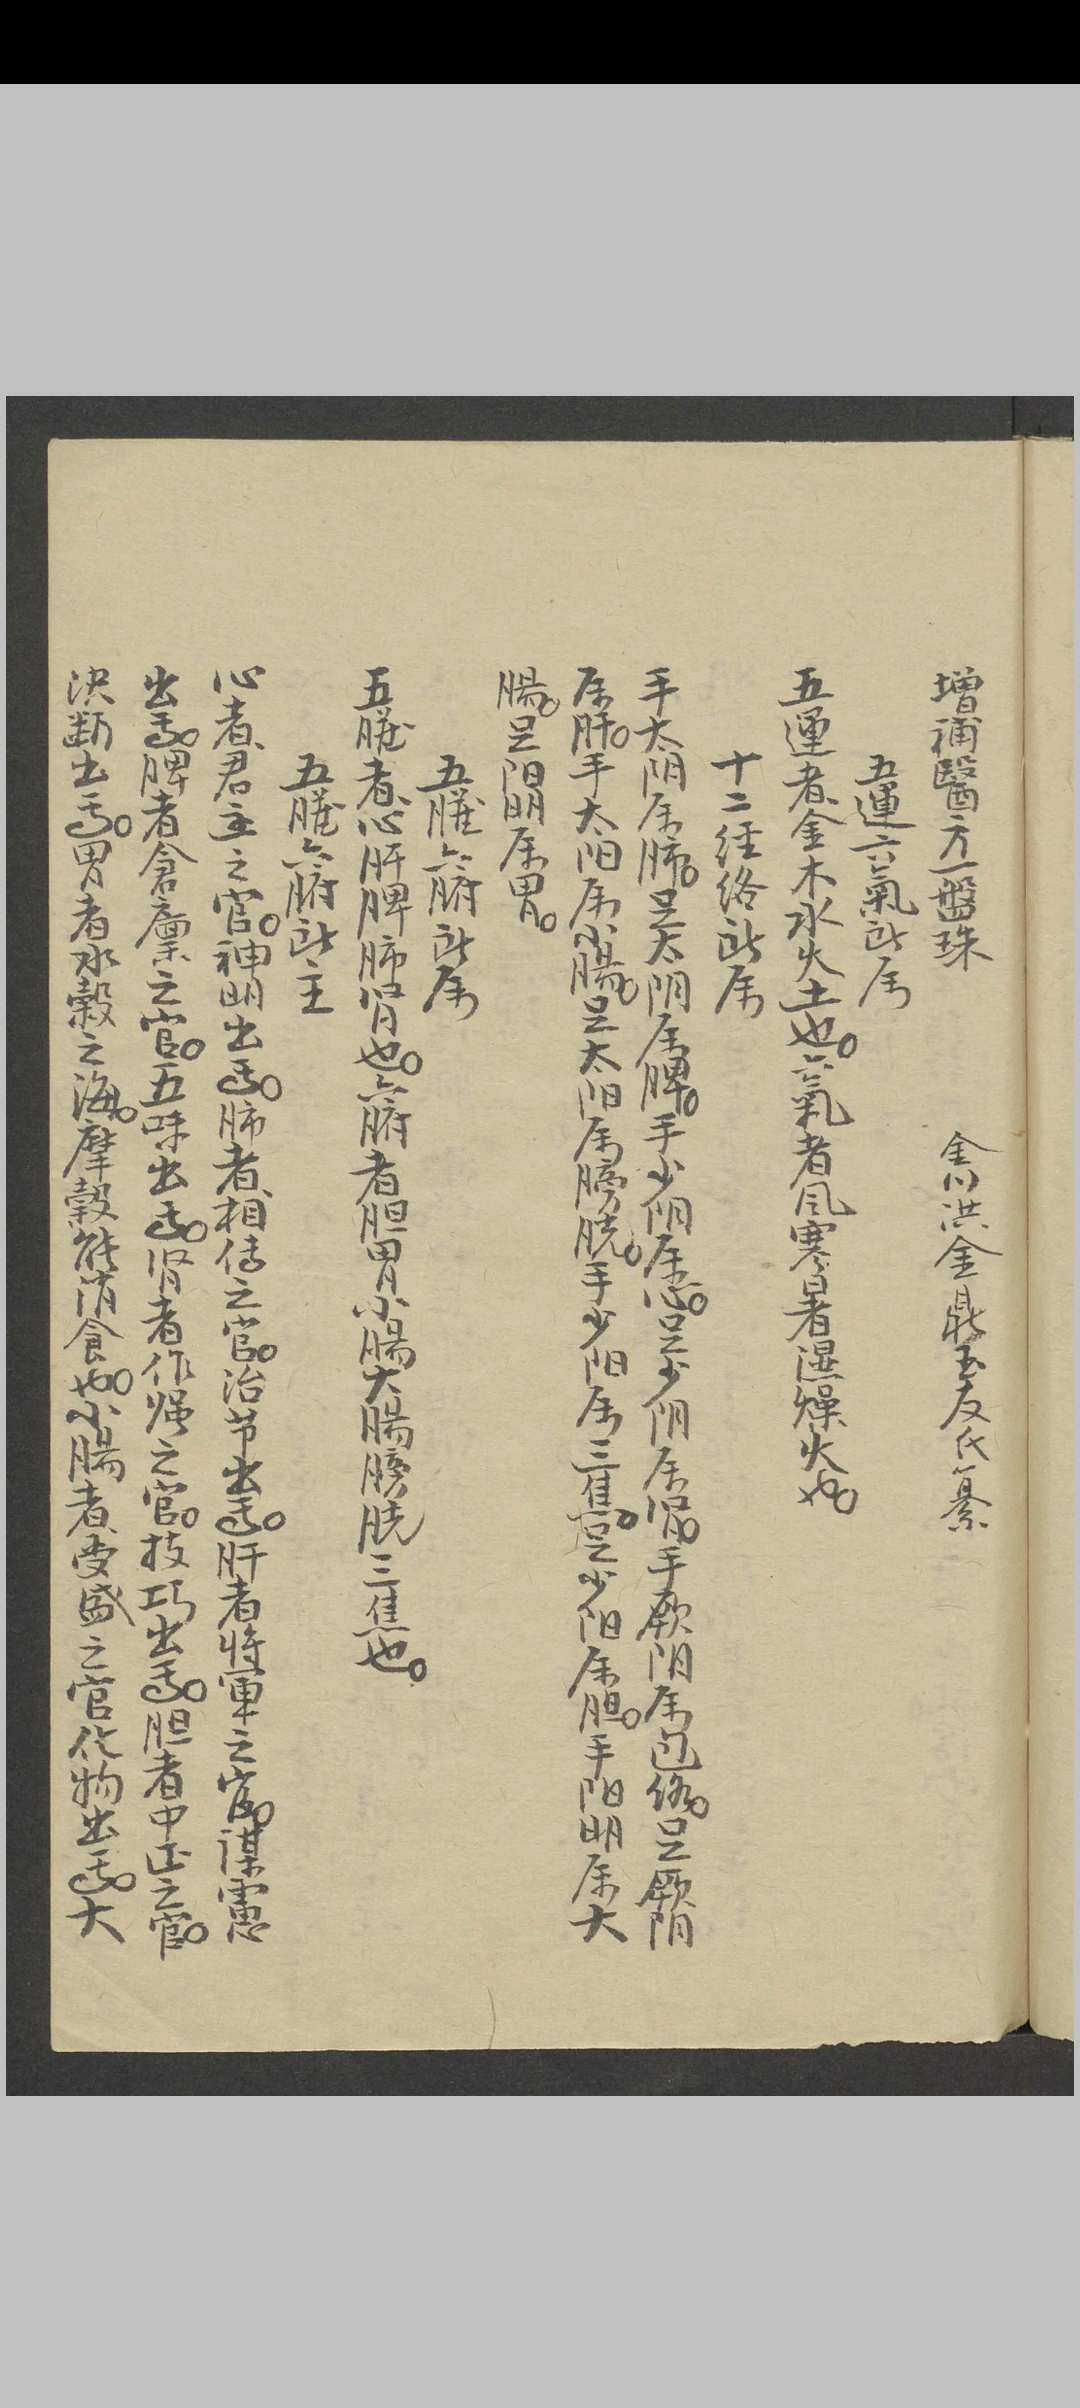 增補醫方一盤珠
金川洪金鼎玉友氏纂
五運六氣所属
五運者金木水火土也。六氣者风寒暑濕燥火也。
十二经络所属
手太阴属肺。足太阴属脾。手少阴属心。足少阴属肾。手厥阴属包络。足厥阴
属肝。手太阳属小腸。足太阳属膀胱。手少阳属三焦。足少阳属胆。手阳明属大
腸。足阳明属胃。
五臟六腑所属
五臟者心肝脾肺肾也。六腑者胆胃小腸大腸膀胱三焦也。
五臟六腑所主
心者君主之官。神明出焉。肺者相传之官。治节出焉。肝者将軍之官。謀慮
出焉。脾者倉廩之官。五味出焉。肾者作强之官。技巧出焉。胆者中正之官。
決断出焉。胃者水穀之海。摩穀能消食也。小腸者受盛之官化物出焉。大